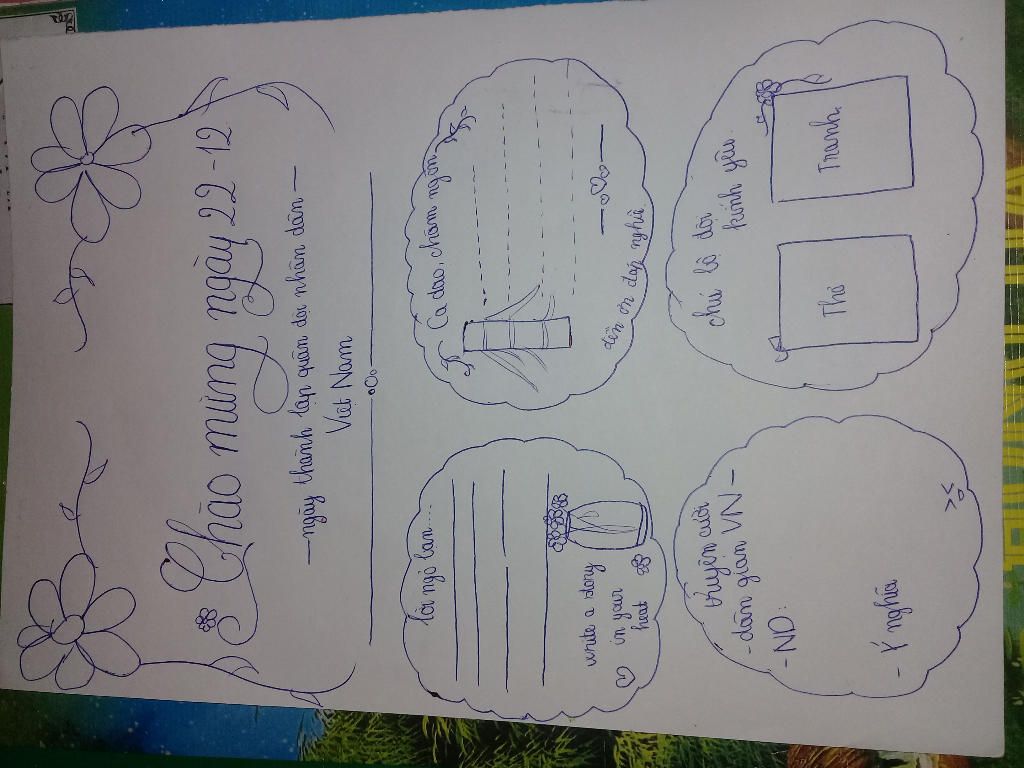 Chào mừng ngày 22-12
- ngày thành lập quân đội nhân dân -
Việt Nam
Lời ngỏ ban....
write a dong
in your
heat
Ca dao, châm ngôn
đền ơn đáp nghĩa
truyện cười
- dân gian VN -
- ND:
- Ý nghĩa
chú bộ đội
kính yêu
Thơ
Tranh